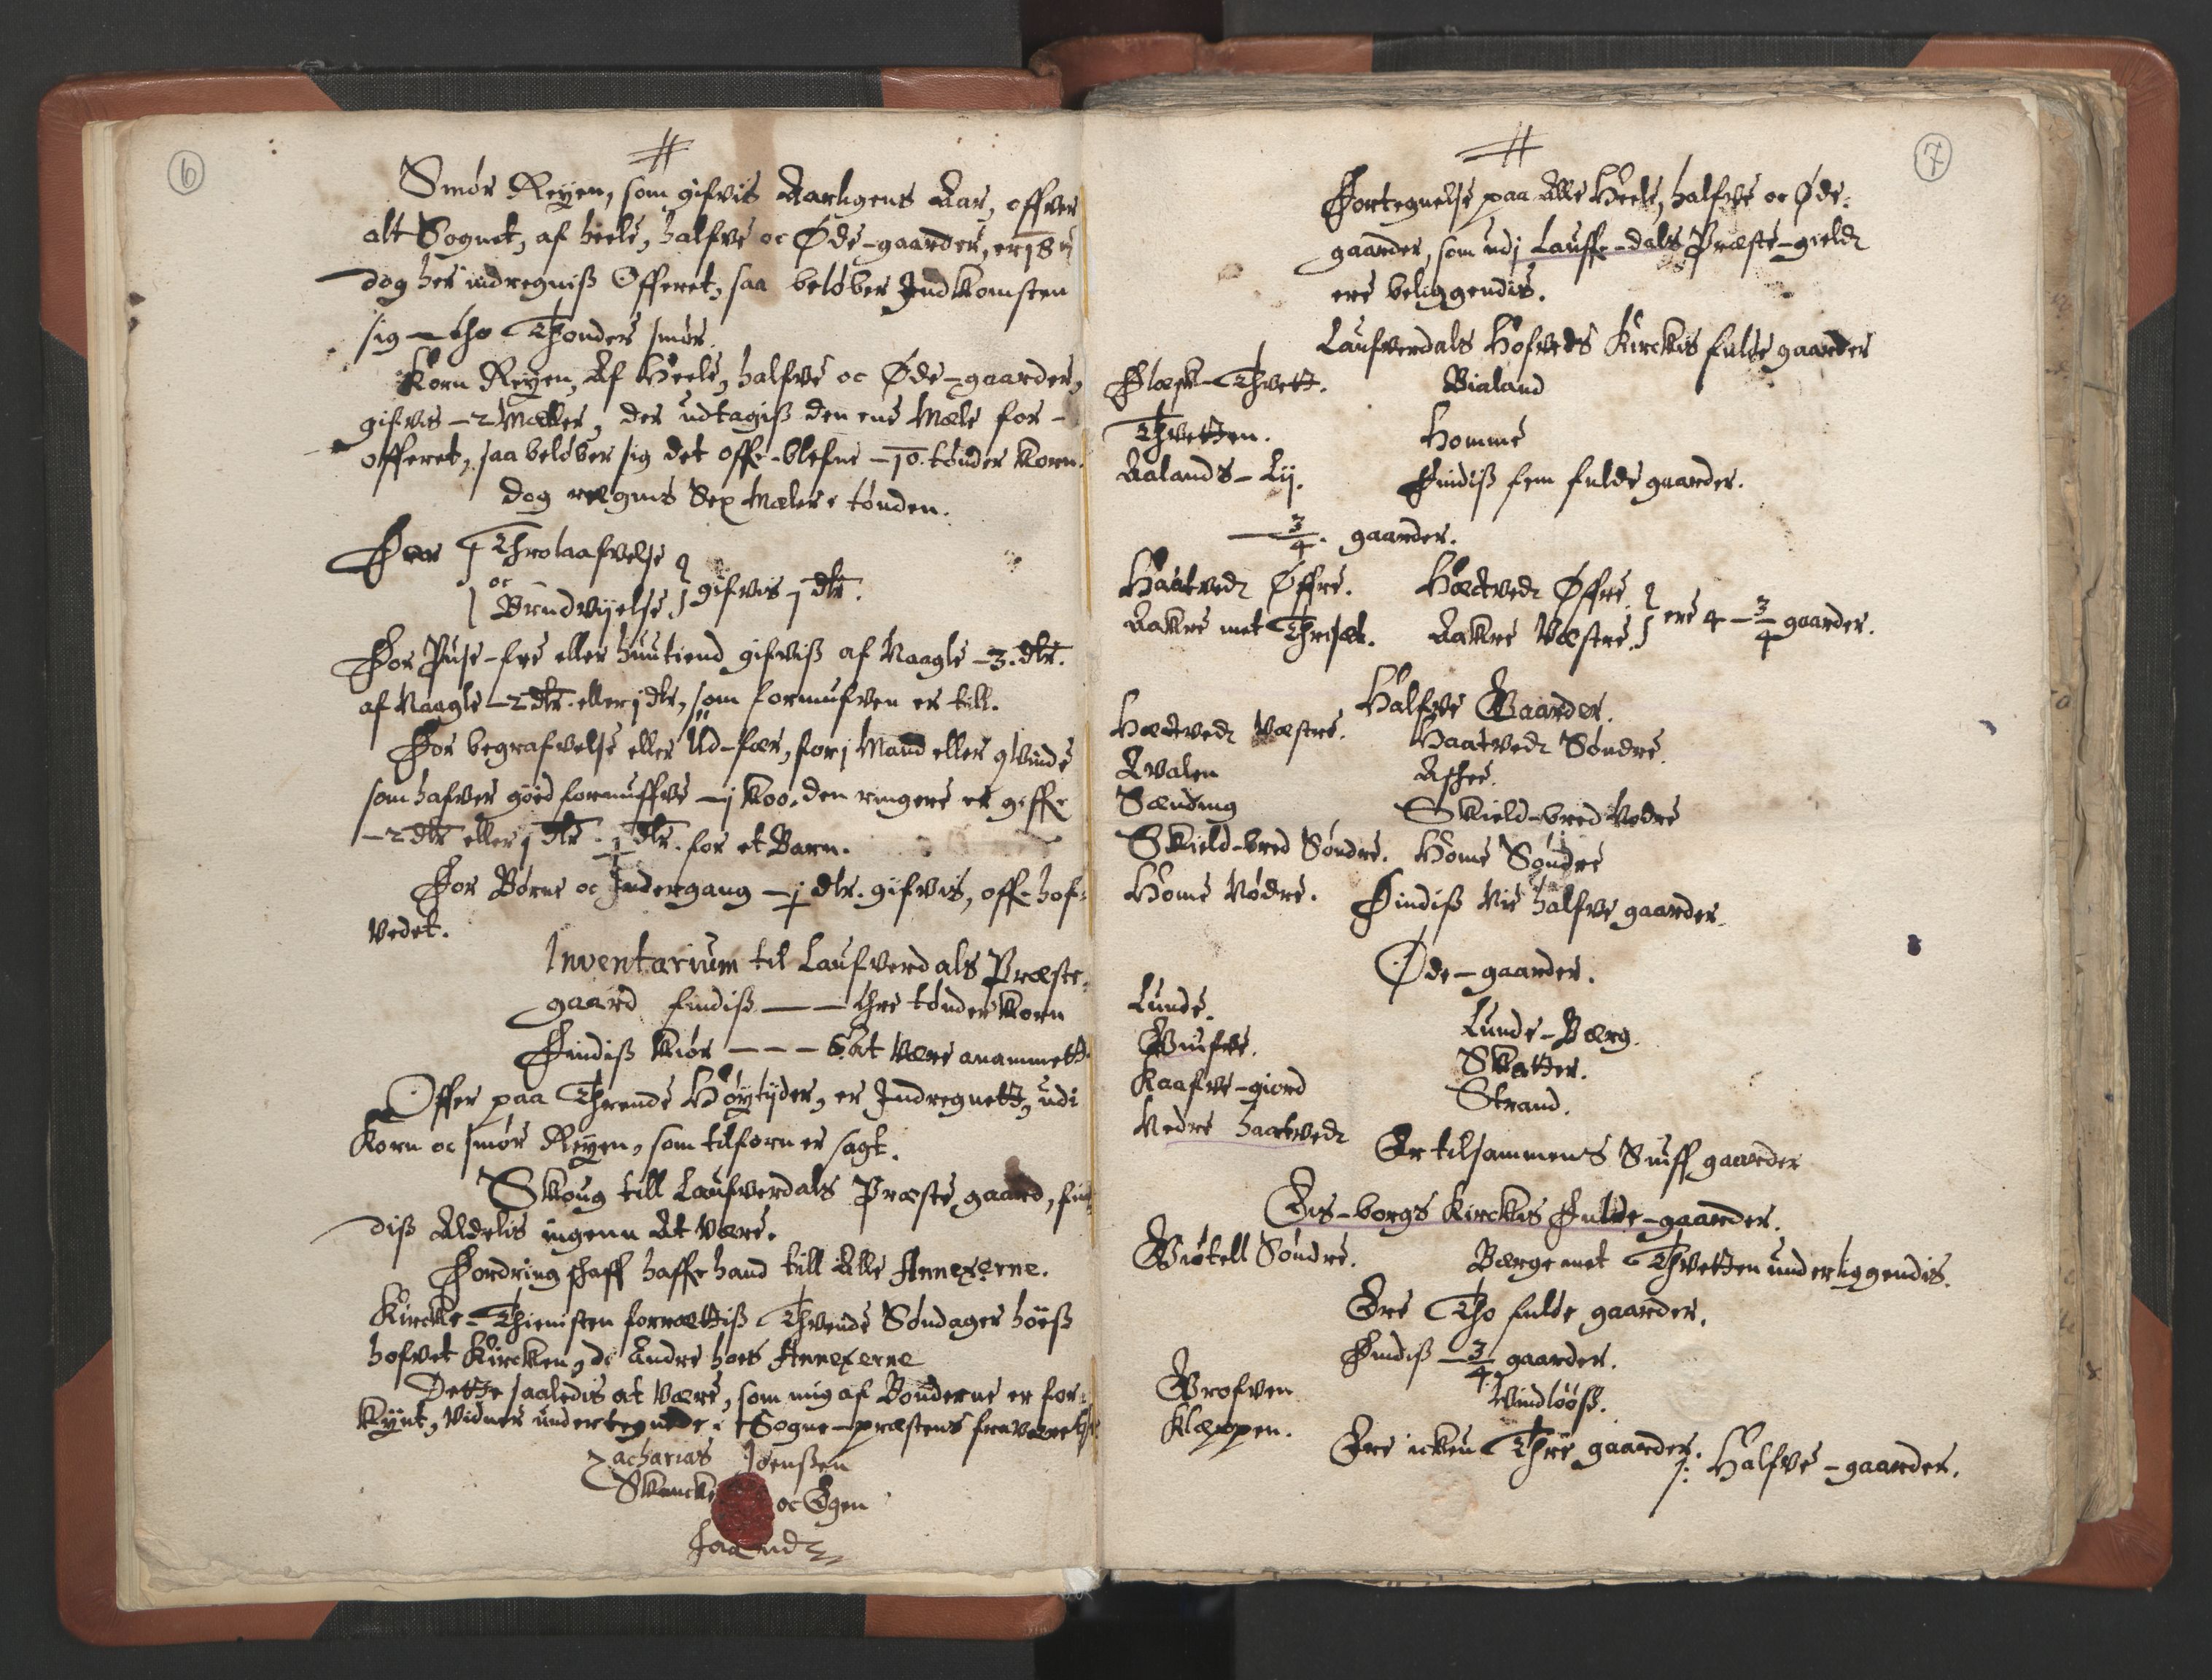 6
#
Smør Reyen, som gifvis Aarligens Aar, offver
alt Sognet, af heele, halfve oc Øde-gaarder, er
dog her indregniß Offeret, saa beløber Indkomsten
sig - tho Thønder smør.
Korn Reyen, Af Heele, halfve oc Øde-gaarder,
gifvis - 2 Mæler, der udtagiß den ene Mæle for -
offeret, saa beløber sig det offr-blefne - 10. tønder Korn.
Dog regnis Sex Mæler i tønden.
For Throlaafvelse
oc
Brudvijelse. gifvis 1 dlr.
For Puse-fæe eller huutiend gifviß af Naagle - 3. dlr.
af Naagle - 2 dlr. eller 1 dlr, som formufven er till.
For begrafvelse eller Ud-fær, for 1 Mand eller qvinde
som hafver goed formuffve - 1 Koo. den ringere et giffr
- 2 dlr eller 1 dlr. ½ dlr. for et Barn.
For Børne oc Indergang - ½ dlr. gifvis, offr hof-
vedet.
Inventarium til Laufverdals Præste-
gaard findiß - - thre tønder Korn
Findiß Kiør - - - 6 at være anammett.
Offer paa Thrende Høytijder, er Indregnett, udi
Korn oc smør Reyen, som tilforn er sagt.
Skoug till Laufverdals Præste gaard, fin-
diß Aldelis ingenn At være.
Fordringschaff haffr hand till Alle Annexerne.
Kircke-Thienisten forrættiß Thvende Søndager hoeß
hofvet Kircken, de Andre hoes Annexerne
Dette saaledis at være, som mig af Bønderne er for-
kynt, Vidner undertegnede i Sogne-præstens fraværelse
Zacharias Joenßen
Skancke oc Egen
Haand
7
#
Fortegnelse paa Alle Heele, halfve oc Øde-
gaarder, som udj Lauffr-dals Præste-gield
ere beliggendis.
Laufverdals Hofveds Kirckis fulde gaarder
Flæsk-Thvett. Bialand
Thvetten. Homme
Aalands-Lij. Findiß fem fulde gaarder.
- 3/4. gaarder.
Haatved Øffre. Hædtved Øffre
Aakre met Thrisæt. Aakre Væstre. ere 4 - 3/4 gaarder.
Halfve Gaarder.
Hædtved Væstre. Haatved Søndre.
Qvalen Aschee.
Sænding Skield-bred Nedre
Skield-bred Søndre. Home Søndre
Home Nødre. Findiß Nie halfve gaarder.
Øde-gaarder.
Lunde. Lunde-Bærg.
Guufre. Skatter.
Kaafve-giord Strand.
Nedre haatved
Er tilsammens Siuff gaarder
Ais-borgs Kirckis Fulde-gaarder.
Giøtell Søndre. Bærge met Thvetten underliggendis.
Ere Tho fulde gaarder.
Findiß - 3/4 gaarder.
Grofven Vindlööß.
Klæppen.
Ere icken Thre gaarder.
/: Halfve-gaarder.